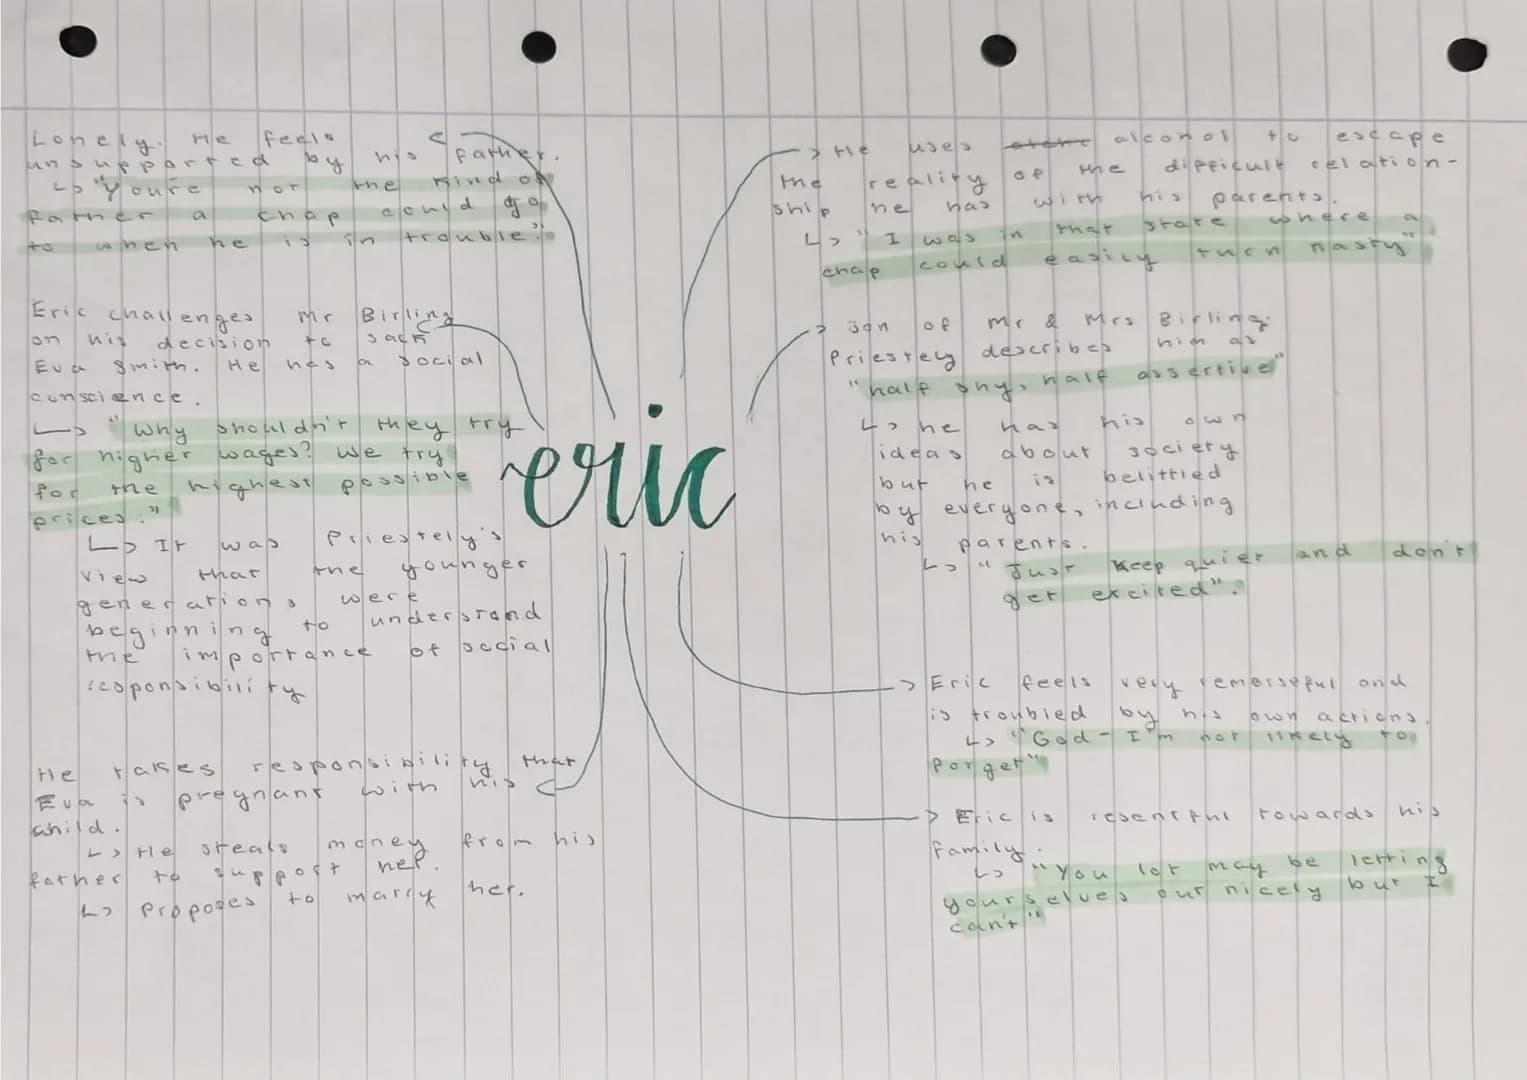 Lonely. He feels
unsupported by his father.
↳ "You're not the kind of
father a chap could go
to when he is in trouble."
Eric challenges Mr Birling
on his decision to sack
Eva Smith. He has a social
conscience.
↳ "Why shouldn't they try
for higher wages? We try
for the highest possible
prices."
↳ It was Priestely's
view that the younger
generations were
beginning to understand
the importance of social
responsibility
He takes responsibility that
Eva is pregnant with his
child.
↳ He steals money from his
father to support her.
↳ Proposes to marry her.
eric
→ He uses alcohol to escape
the reality of the difficult relation-
ship he has with his parents.
↳ "I was in that state where a
chap could easily turn nasty"
→ Son of Mr & Mrs Birling.
Priestely describes him as
"half shy, half assertive"
↳ he has his own
ideas about society
but he is belittled
by everyone, including
his parents.
↳ "Just keep quiet and don't
get excited".
→ Eric feels very remorseful and
is troubled by his own actions.
↳ "God - I'm not likely to
forget"
→ Eric is resentful towards his
family.
↳ "You lot may be letting
yourselves out nicely but I
can't"